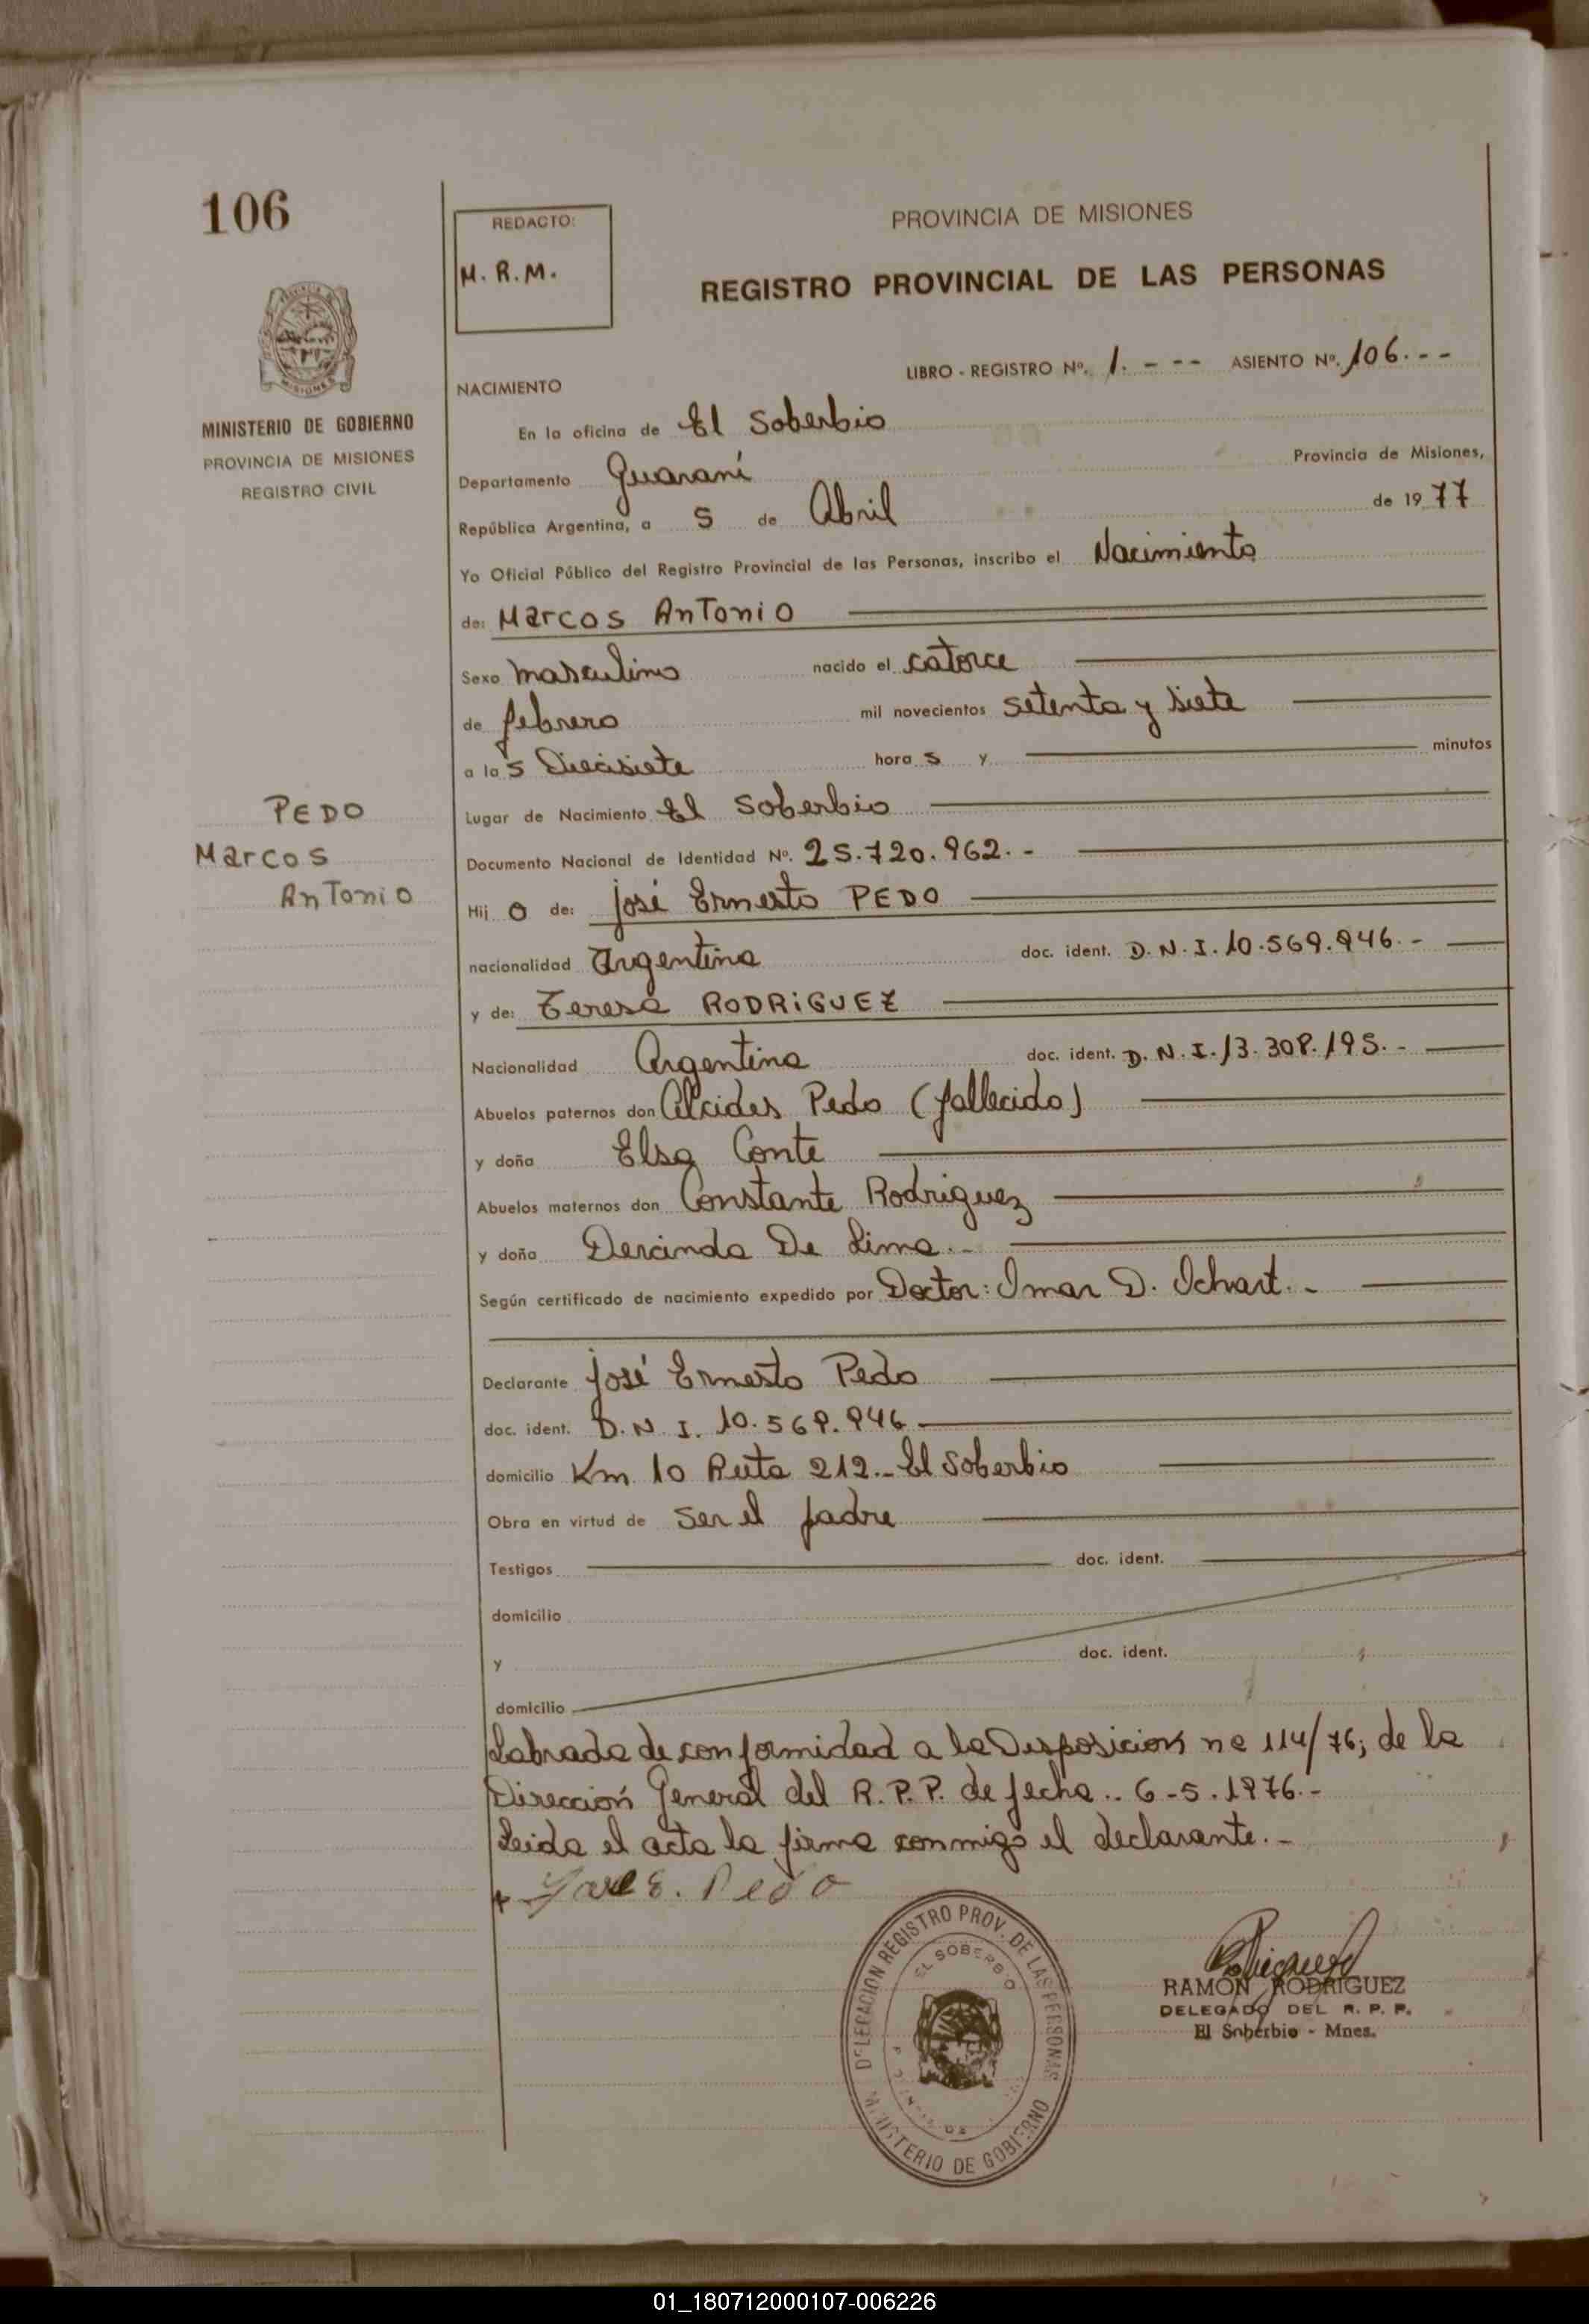 106
REDACTO:
M. R. M.
PROVINCIA DE MISIONES
REGISTRO PROVINCIAL DE LAS PERSONAS
MINISTERIO DE GOBIERNO
PROVINCIA DE MISIONES
REGISTRO CIVIL
LIBRO - REGISTRO Nº. 1. - - - ASIENTO Nº. 106. - -
NACIMIENTO
En la oficina de El Soberbio
Departamento Guaraní Provincia de Misiones,
República Argentina, a 5 de Abril de 1977
Yo Oficial Público del Registro Provincial de las Personas, inscribo el Nacimiento
de: Marcos Antonio
Sexo masculino nacido el catorce
de febrero mil novecientos setenta y siete
a las Diecisiete horas y minutos
PEDO
Marcos
Antonio
Lugar de Nacimiento El Soberbio
Documento Nacional de Identidad Nº. 25.720.962. -
Hijo de: José Ernesto PEDO
nacionalidad Argentina doc. ident. D. N. I. 10.569.946. -
y de: Teresa RODRIGUEZ
Nacionalidad Argentina doc. ident. D. N. I. 13.308.195. -
Abuelos paternos don Alcides Pedo (fallecido)
y doña Elsa Conte
Abuelos maternos don Constante Rodriguez
y doña Dercinda De Lima. -
Según certificado de nacimiento expedido por Doctor: Imar D. Ichart. -
Declarante José Ernesto Pedo
doc. ident. D. N. I. 10.569.946
domicilio Km 10 Ruta 212.- El Soberbio
Obra en virtud de ser el padre
Testigos doc. ident.
domicilio
y doc. ident.
domicilio
Labrada de conformidad a la Disposicion nº 114/76; de la
Dirección General del R. P. P. de fecha.. 6-5.1976.-
Leida el acta la firma conmigo el declarante. -
José E. Pedo
DELEGACION REGISTRO PROV. DE LAS PERSONAS
EL SOBERBIO
MINISTERIO DE GOBIERNO
RAMÓN RODRIGUEZ
DELEGADO DEL R. P. P.
El Soberbio - Mnes.
01_180712000107-006226